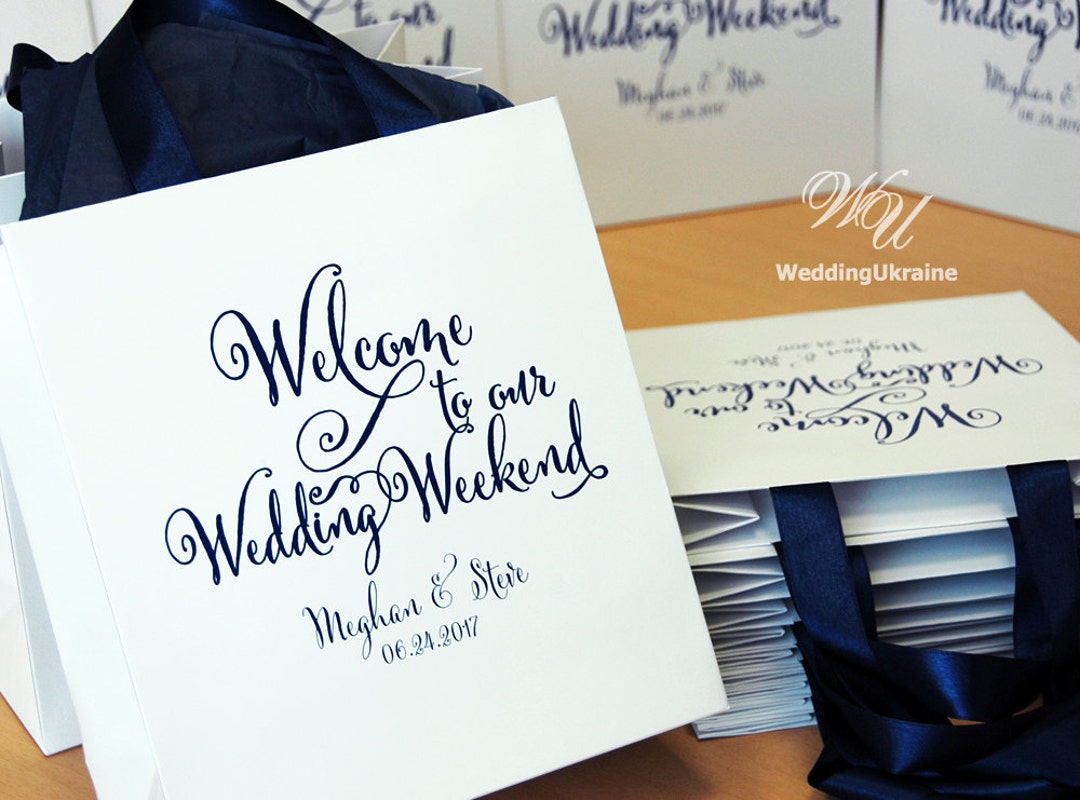 Welcome
to our
Wedding Weekend
Meghan & Steve
06.24.2017
to our
Wedding Weekend
Meghan & Steve
06.24.2017
Wedding Weekend
Meghan &
06.24.2017
WU
WeddingUkraine
Welcome
to our
Wedding Weekend
Meghan & Steve
06.24.2017